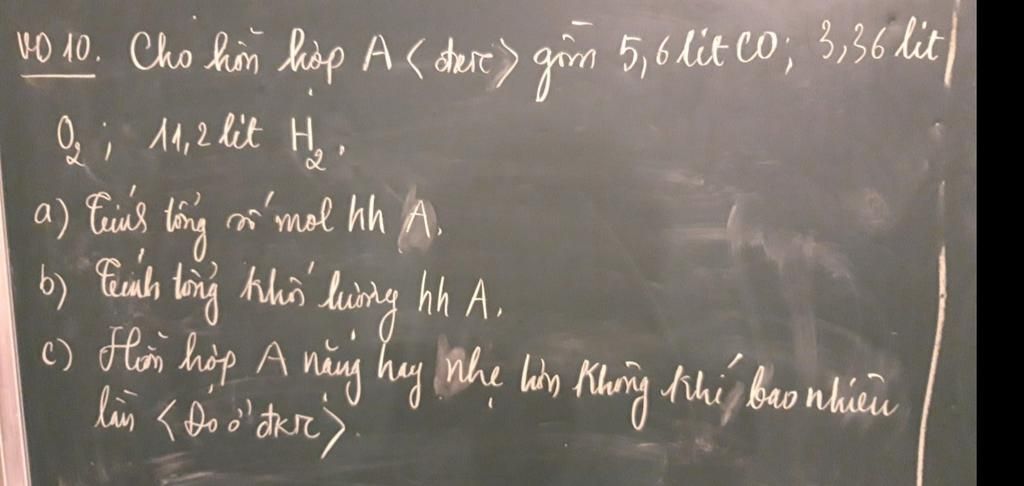 VD 10. Cho hỗn hợp A < đktc > gồm 5,6 lit CO; 3,36 lit
O2; 11,2 lit H2.
a) Tính tổng số mol hh A.
b) Tính tổng khối lượng hh A.
c) Hỗn hợp A nặng hay nhẹ hơn không khí bao nhiêu
lần < Đo ở đktc >.